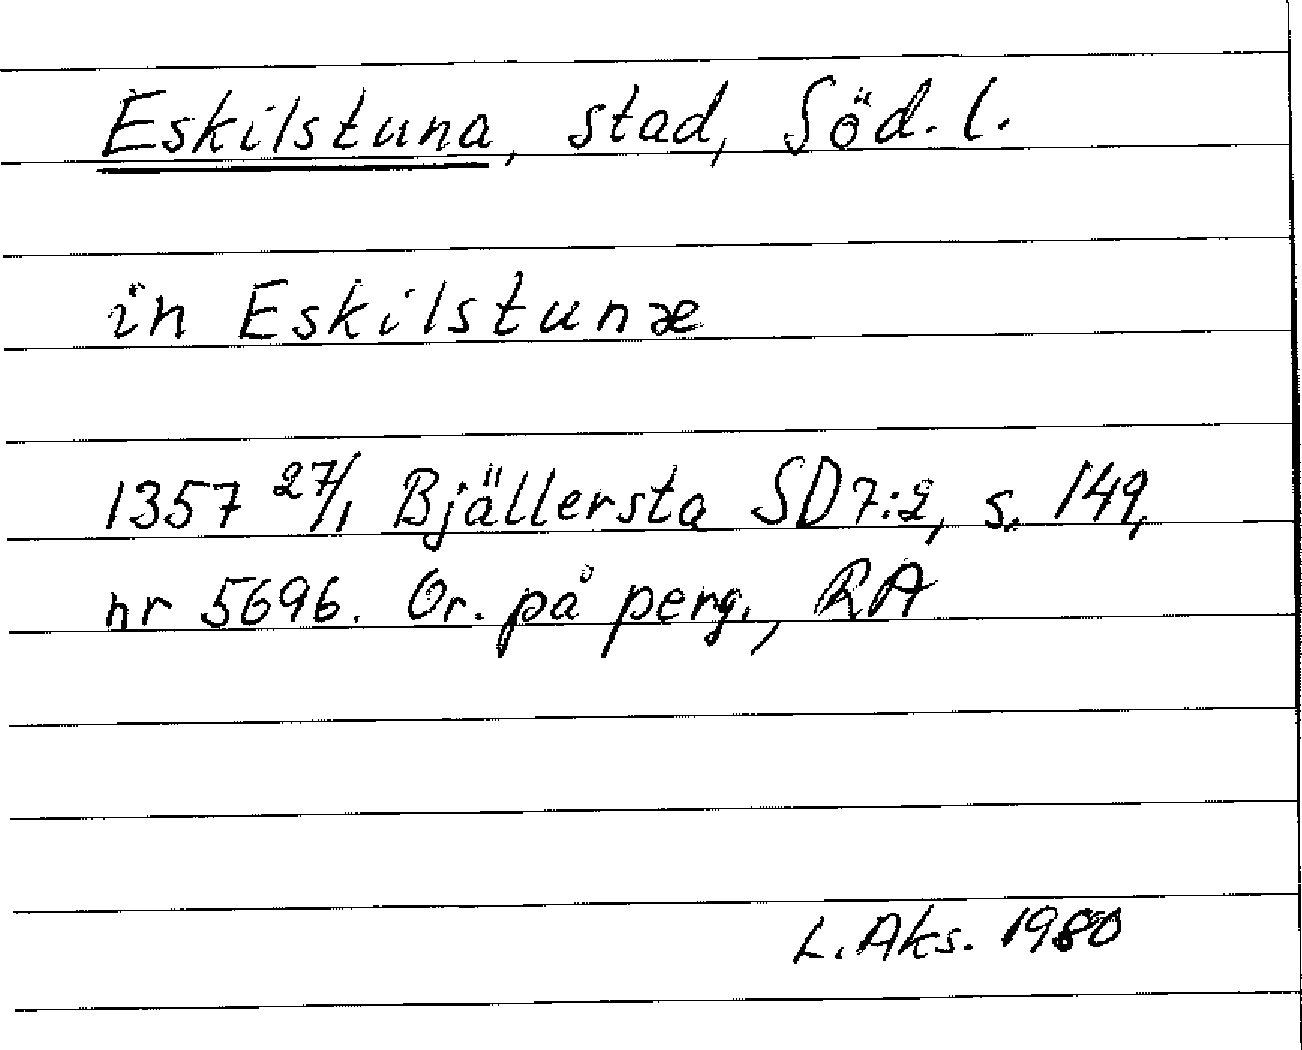 Eskilstuna, stad, Söd. l.
in Eskilstunæ
1357 27/1 Bjällersta SD 7:2, s. 149,
nr 5696. Or. på perg., RA
L. Aks. 1980